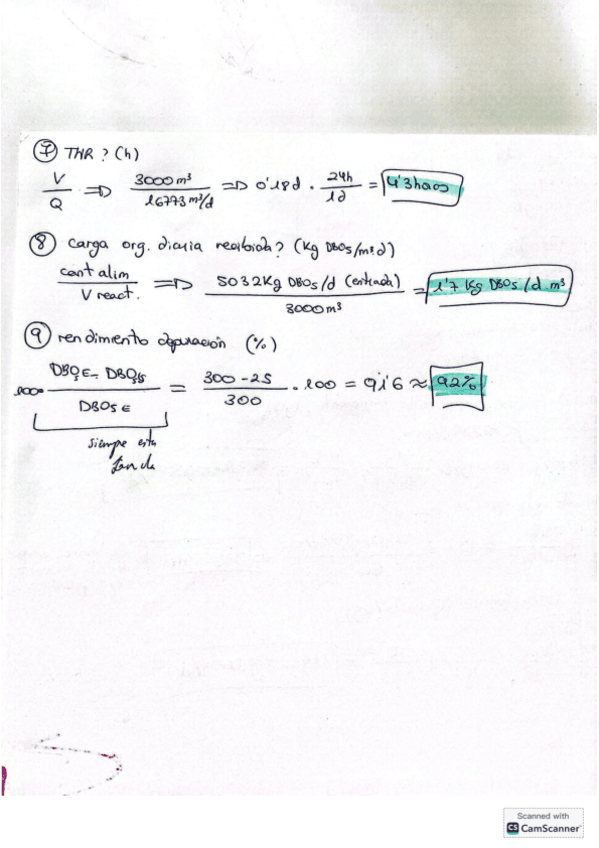 ⑦ THR ? (h)
V / Q ⇒ 3000 m³ / 16773 m³/d ⇒ 0'18 d · 24h / 1d = 4'3 horas
⑧ Carga org. diaria recibida? (Kg DBO5/m³·d)
cant alim / V react. ⇒ 5032 Kg DBO5/d (entrada) / 3000 m³ = 1'7 Kg DBO5/d m³
⑨ rendimiento depuración (%)
100· DBO5E - DBO5S / DBO5 E = 300 - 25 / 300 · 100 = 91'6 ≈ 92%
siempre esta
Scanned with
CS CamScanner